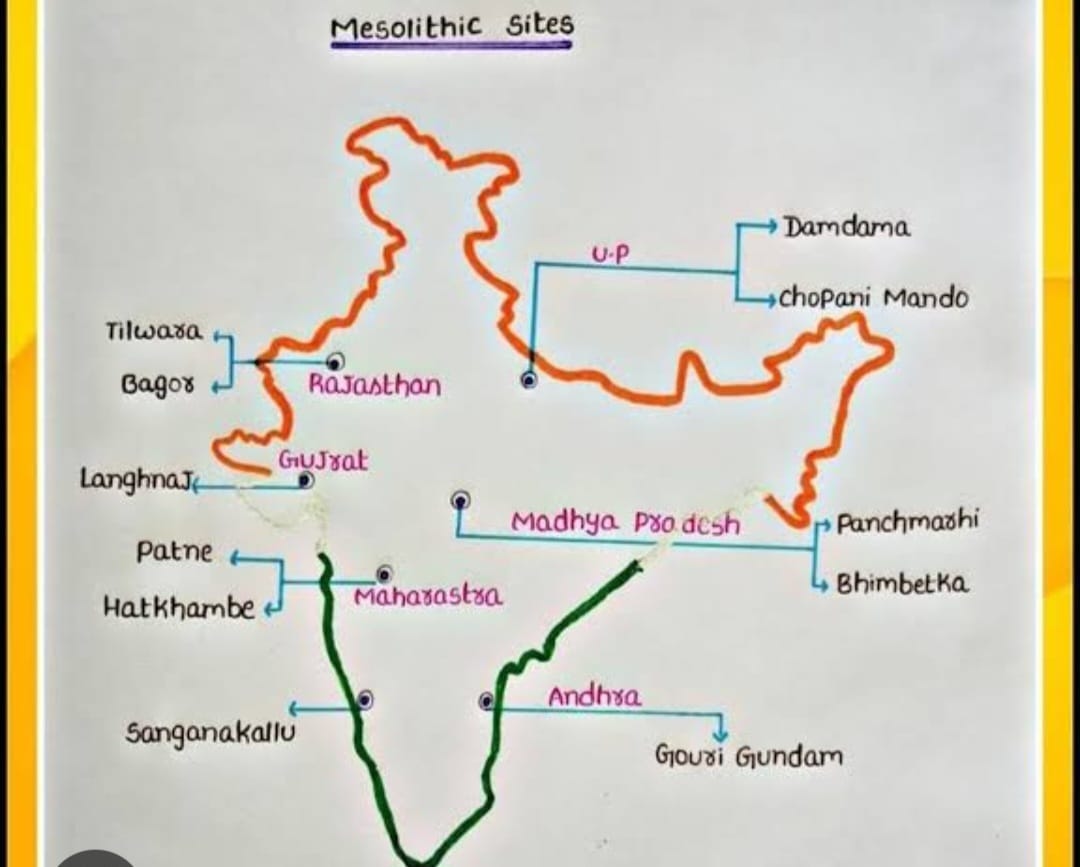 Mesolithic Sites
Damdama
U.P
Chopani Mando
Tilwara
Bagor
Rajasthan
Gujrat
Langhnaj
Madhya Pradesh
Panchmarhi
Patne
Bhimbetka
Maharastra
Hatkhambe
Andhra
Sanganakallu
Gouri Gundam